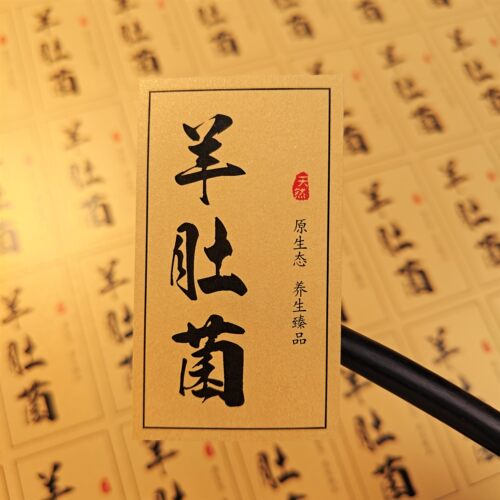 羊肚菌
天然
原生态 养生臻品